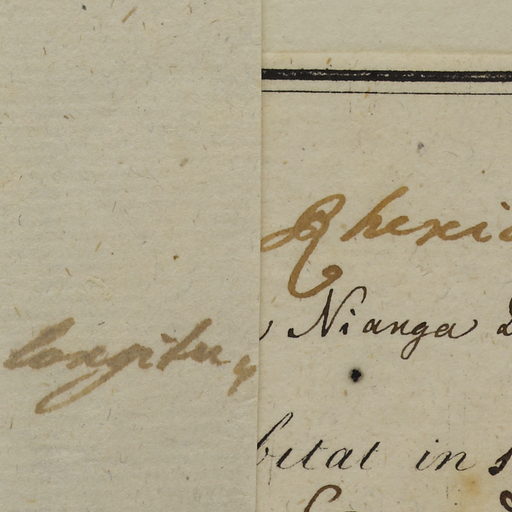 Rhexi
Nianga
longitu
bitat in s